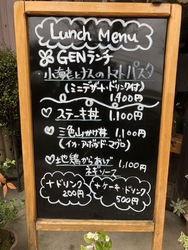 Lunch Menu
GENランチ
・小海老とナスのトマトパスタ
(ミニデザート・ドリンク付)
1,400円
♡ステーキ丼 1,100円
♡三色山かけ丼 1,100円
(イカ・アボカド・マグロ)
♡地鶏からあげ 1,100円
ネギソース
+ドリンク
200円
+ケーキ・ドリンク
500円